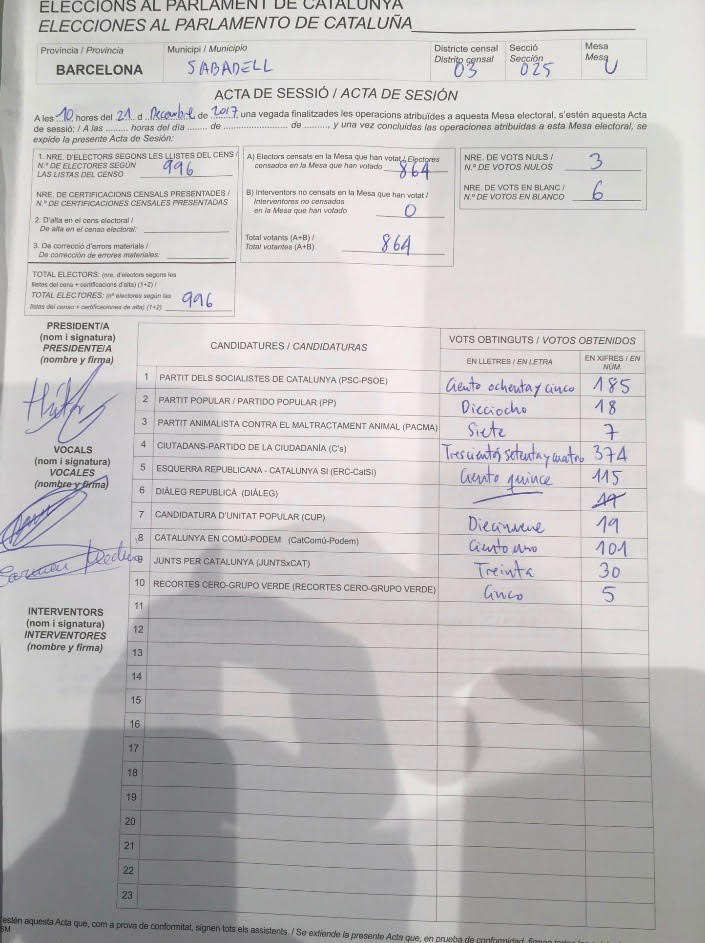 ELECCIONS AL PARLAMENT DE CATALUNYA
ELECCIONES AL PARLAMENTO DE CATALUÑA
Provincia / Provincia
BARCELONA
Municipi / Municipio
SABADELL
Districte censal
Distrito censal
03
Secció
Sección
025
Mesa
Mesa
U
ACTA DE SESSIÓ / ACTA DE SESIÓN
A les 10 hores del 21 d Decembre de 2017, una vegada finalitzades les operacions atribuïdes a aquesta Mesa electoral, s'estén aquesta Acta
de sessió: / A las ......... horas del día ...... de ....................... de ........, y una vez concluidas las operaciones atribuidas a esta Mesa electoral, se
expide la presente Acta de Sesión:
1. NRE. D'ELECTORS SEGONS LES LLISTES DEL CENS /
N.º DE ELECTORES SEGÚN
LAS LISTAS DEL CENSO
996
NRE. DE CERTIFICACIONS CENSALS PRESENTADES /
N.º DE CERTIFICACIONES CENSALES PRESENTADAS
2. D'alta en el cens electoral /
De alta en el censo electoral:
3. De correcció d'errors materials /
De corrección de errores materiales:
TOTAL ELECTORS: (nre. d'electors segons les
llistes del cens + certificacions d'alta) (1+2) /
TOTAL ELECTORES: (nº electores según las
listas del censo + certificaciones de alta) (1+2)
996
A) Electors censats en la Mesa que han votat / Electores
censados en la Mesa que han votado
864
B) Interventors no censats en la Mesa que han votat /
Interventores no censados
en la Mesa que han votado
0
Total votants (A+B) /
Total votantes (A+B)
864
NRE. DE VOTS NULS /
N.º DE VOTOS NULOS
3
NRE. DE VOTS EN BLANC /
N.º DE VOTOS EN BLANCO
6
PRESIDENT/A
(nom i signatura)
PRESIDENTE/A
(nombre y firma)
VOCALS
(nom i signatura)
VOCALES
(nombre y firma)
INTERVENTORS
(nom i signatura)
INTERVENTORES
(nombre y firma)
CANDIDATURES / CANDIDATURAS
VOTS OBTINGUTS / VOTOS OBTENIDOS
EN LLETRES / EN LETRA
EN XIFRES / EN
NÚM.
1 PARTIT DELS SOCIALISTES DE CATALUNYA (PSC-PSOE) Ciento ochenta y cinco 185
2 PARTIT POPULAR / PARTIDO POPULAR (PP) Dieciocho 18
3 PARTIT ANIMALISTA CONTRA EL MALTRACTAMENT ANIMAL (PACMA) Siete 7
4 CIUTADANS-PARTIDO DE LA CIUDADANÍA (C's) Trescientos setenta y cuatro 374
5 ESQUERRA REPUBLICANA - CATALUNYA SI (ERC-CatSí) Ciento quince 115
6 DIÀLEG REPUBLICÀ (DIÀLEG) 19
7 CANDIDATURA D'UNITAT POPULAR (CUP) Diecinueve 19
8 CATALUNYA EN COMÚ-PODEM (CatComú-Podem) Ciento uno 101
9 JUNTS PER CATALUNYA (JUNTSxCAT) Treinta 30
10 RECORTES CERO-GRUPO VERDE (RECORTES CERO-GRUPO VERDE) Cinco 5
11
12
13
14
15
16
17
18
19
20
21
22
23
estén aquesta Acta que, com a prova de conformitat, signen tots els assistents. / Se extiende la presente Acta que, en prueba de conformidad, firman